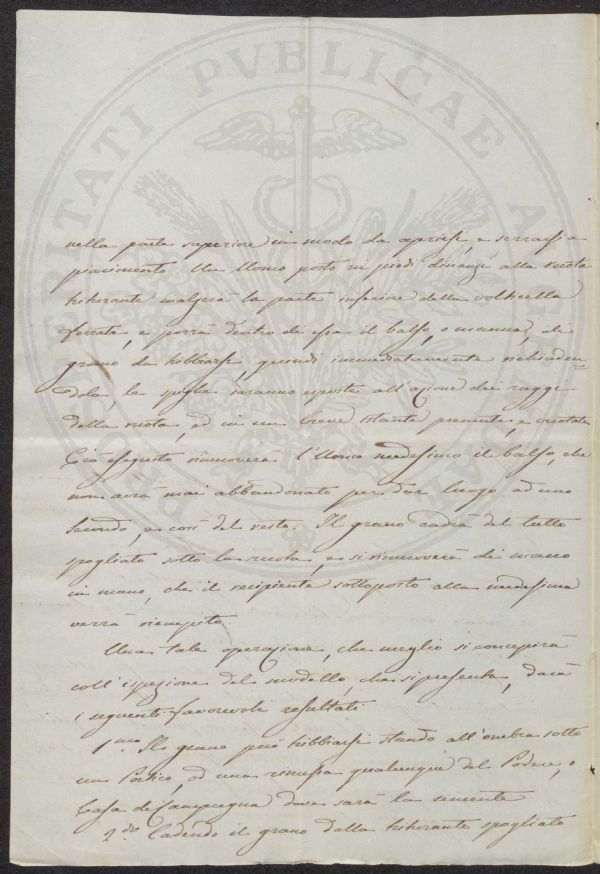 PROSPERITATI PVBLICAE AVGENDAE
nella parte superiore in modo da aprirsi, e serrarsi a
piacimento. Un Uomo posto in piedi dinanzi alla ruota
triturante la parte inferiore della volticella
ferrata, e porrà dentro di essa il balso, o manna, di
grano da tribbiarsi, quindi immediatamente richiuden=
dola, le spighe saranno esposte all'azione dei raggi
della ruota, ed in un breve istante premute, e
Ciò eseguito rimuoverà l'Uomo medesimo il balso, che
non avrà mai abbandonato per dar luogo ad uno
secondo, e così del resto. Il grano cadrà del tutto
spogliato sotto la ruota, e si rimuoverà di mano
in mano, che il recipiente sottoposto alla medesima
verrà riempito.
Una tale operazione, che meglio si concepirà
coll'ispezione del modello, che si presenta, darà
i seguenti favorevoli resultati
1.mo Il grano può tribbiarsi stando all'ombra sotto
un Portico, od una rimessa qualunque del Podere, o
Casa di Campagna dove sarà la semente
2.do Cadendo il grano dalla triturante spogliato